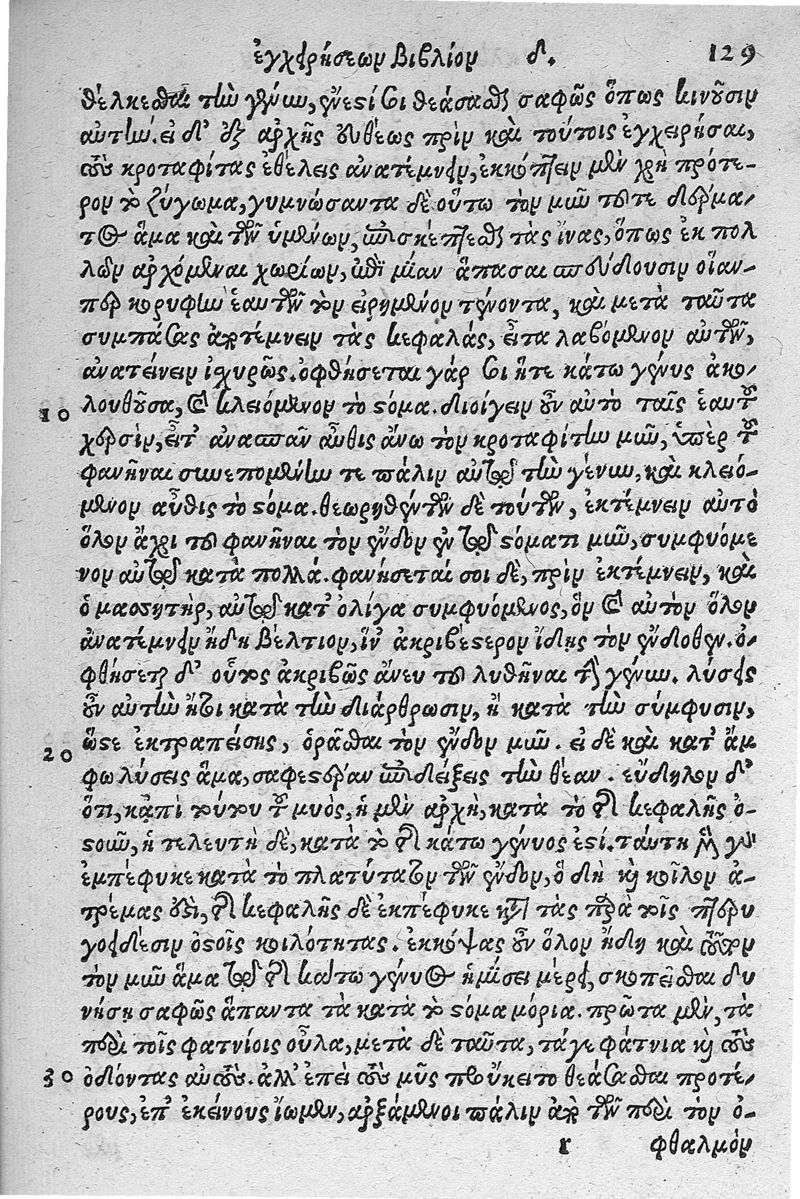 ἐγχειρήσεων Βιβλίον δ. 129
θέλκεσθαι τὴν γένυν, ἔνεστί σοι θεάσασθαι σαφῶς ὅπως κινοῦσιν
αὐτήν. εἰ δ' ἐξ ἀρχῆς εὐθέως πρὶν καὶ τούτοις ἐγχειρῆσαι,
τοὺς κροταφίτας ἐθέλεις ἀνατέμνειν, ἐκκόπτειν μὲν χρὴ πρότε-
ρον τὸ ζύγωμα, γυμνώσαντα δὲ οὕτω τὸν μῦν τοῦτε δέρμα-
τος ἅμα καὶ τῶν ὑμένων, ἐπισκέπτεσθαι τὰς ἶνας, ὅπως ἐκ πολ
λῶν ἀρχόμεναι χωρίων, ἐπὶ μίαν ἅπασαι σπεύδουσιν οἷαν-
περ κορυφὴν ἑαυτῶν τὸν εἰρημένον τένοντα, καὶ μετὰ ταῦτα
συμπάσας ἀποτέμνειν τὰς κεφαλάς, εἶτα λαβόμενον αὐτῶν,
ἀνατείνειν ἰσχυρῶς. ὀφθήσεται γάρ σοι ἥτε κάτω γένυς ἀκο-
10 λουθοῦσα, καὶ κλειόμενον τὸ στόμα. διοίγειν οὖν αὐτὸ ταῖς ἑαυτοῦ
χερσὶν, εἶτ' ἀνασπᾶν αὖθις ἄνω τὸν κροταφίτην μῦν, ὑπὲρ τοῦ
φανῆναι συνεπομένην τε πάλιν αὐτῷ τὴν γένυν, καὶ κλειό-
μενον αὖθις τὸ στόμα. θεωρηθέντων δὲ τούτων, ἐκτέμνειν αὐτὸ
ὅλον ἄχρι τοῦ φανῆναι τὸν ἔνδον ἐν τῷ στόματι μῦν, συμφυόμε
νον αὐτῷ κατὰ πολλά. φανήσεταί σοι δὲ, πρὶν ἐκτέμνειν, καὶ
ὁ μασητὴρ, αὐτῷ κατ' ὀλίγα συμφυόμενος, ὃν καὶ αὐτὸν ὅλον
ἀνατέμνειν ἤδη βέλτιον, ἵν' ἀκριβέστερον ἴδῃς τὸν ἔνδοθεν. ὀ-
φθήσεται δ' οὗτος ἀκριβῶς ἄνευ τοῦ λυθῆναι τὴν γένυν. λύσεις
οὖν αὐτὴν ἤτοι κατὰ τὴν διάρθρωσιν, ἢ κατὰ τὴν σύμφυσιν,
20 ὥστε ἐκτραπείσης, ὁρᾶσθαι τὸν ἔνδον μῦν. εἰ δὲ καὶ κατ' ἄμ
φω λύσεις ἅμα, σαφεστέραν ἐπιδείξεις τὴν θέαν. εὔδηλον δ'
ὅτι, κἀπὶ τούτου τοῦ μυὸς, ἡ μὲν ἀρχὴ, κατὰ τὸ τῆς κεφαλῆς ὀ-
στοῦν, ἡ τελευτὴ δὲ, κατὰ τὸ τῆς κάτω γένυος ἐστί. ταύτῃ μὲν γὰρ
ἐμπέφυκε κατὰ τὸ πλατύτατον τῶν ἔνδον, ὃ δὴ καὶ κοῖλον ἀ-
τρέμας ἐστὶ, τῆς κεφαλῆς δὲ ἐκπέφυκε κατὰ τὰς παρὰ τοῖς πτερυ
γοειδέσιν ὀστοῖς κοιλότητας. ἐκκόψας οὖν ὅλον ἤδη καὶ τοῦτον
τὸν μῦν ἅμα τῷ τῆς κάτω γένυος ἡμίσει μέρει, σκοπεῖσθαι δυ
νήσῃ σαφῶς ἅπαντα τὰ κατὰ τὸ στόμα μόρια. πρῶτα μὲν, τὰ
περὶ τοῖς φατνίοις οὖλα, μετὰ δὲ ταῦτα, τά γε φάτνια καὶ τοὺς
30 ὀδόντας αὐτούς. ἀλλ' ἐπεὶ τοὺς μῦς προὔκειτο θεάσασθαι προτέ-
ρους, ἐπ' ἐκείνους ἴωμεν, ἀρξάμενοι πάλιν ἀπὸ τῶν περὶ τὸν ὀ-
r φθαλμὸν